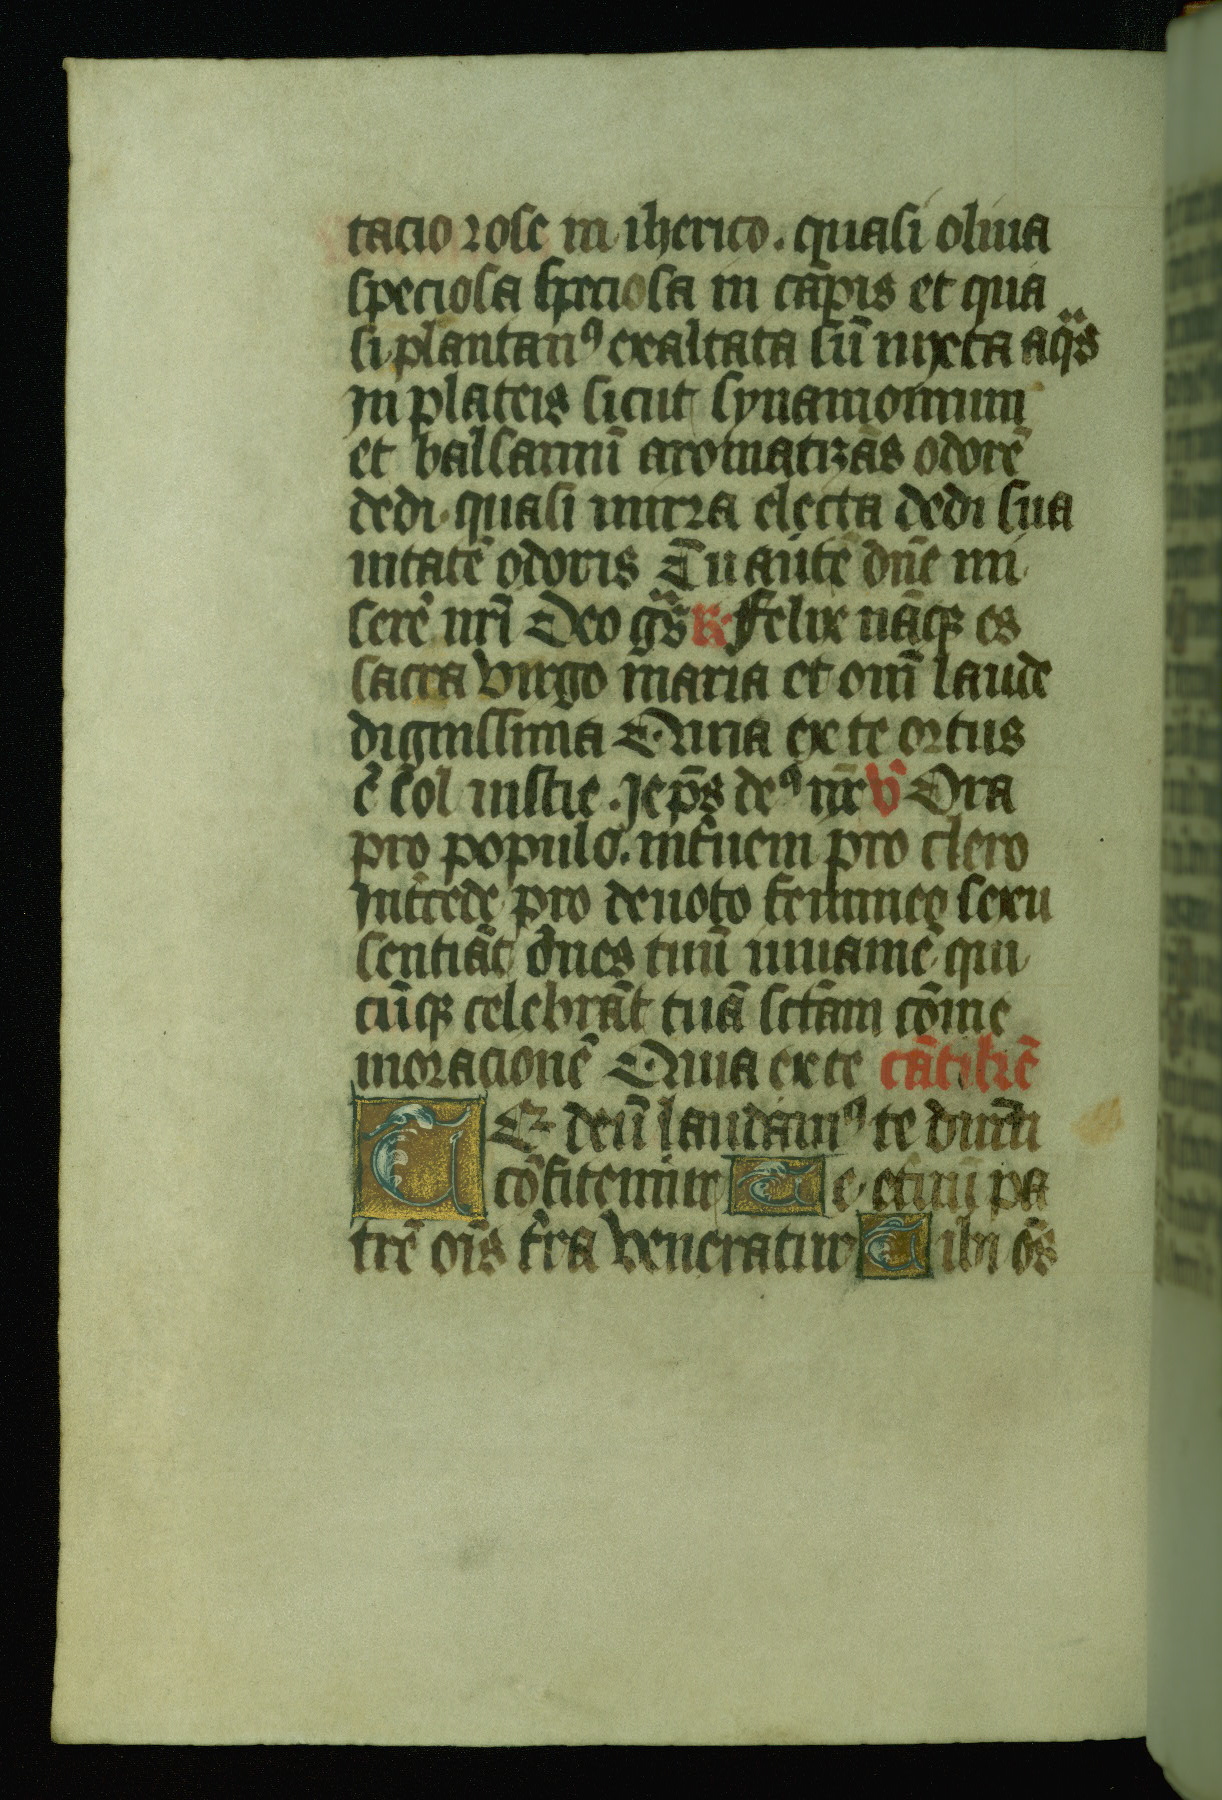 tacio rose in iherico. quasi oliua
speciosa speciosa in cāpis et qua
si plantanꝰ exaltata sū iuxta aqͣs
In plateis sicut synamomum
et balsamū aromatizās odorē
dedi quasi mirra electa dedi sua
uitatē odoris Tu autē dn̄e mi
serē nr̄i Deo gͣs ℟ Felix nāqꝫ es
sacra virgo maria et om̄i laude
dignissima Quia ex te ortus
ē sol iusticie .xp̄s deꝰ nr̄ ℣ Ora
pro populo. int̄ueni pro clero
Int̄cede pro deuoto femineo sexu
sentiāt om̄es tuū iuuamē qui
cūqꝫ celebrāt tuā sctām cōme
moracionē Quia ex te
TE deū laudamꝰ te dn̄m
cōfitemur Te et̄nū pa
trē ois t̄ra veneratur Tibi oēs